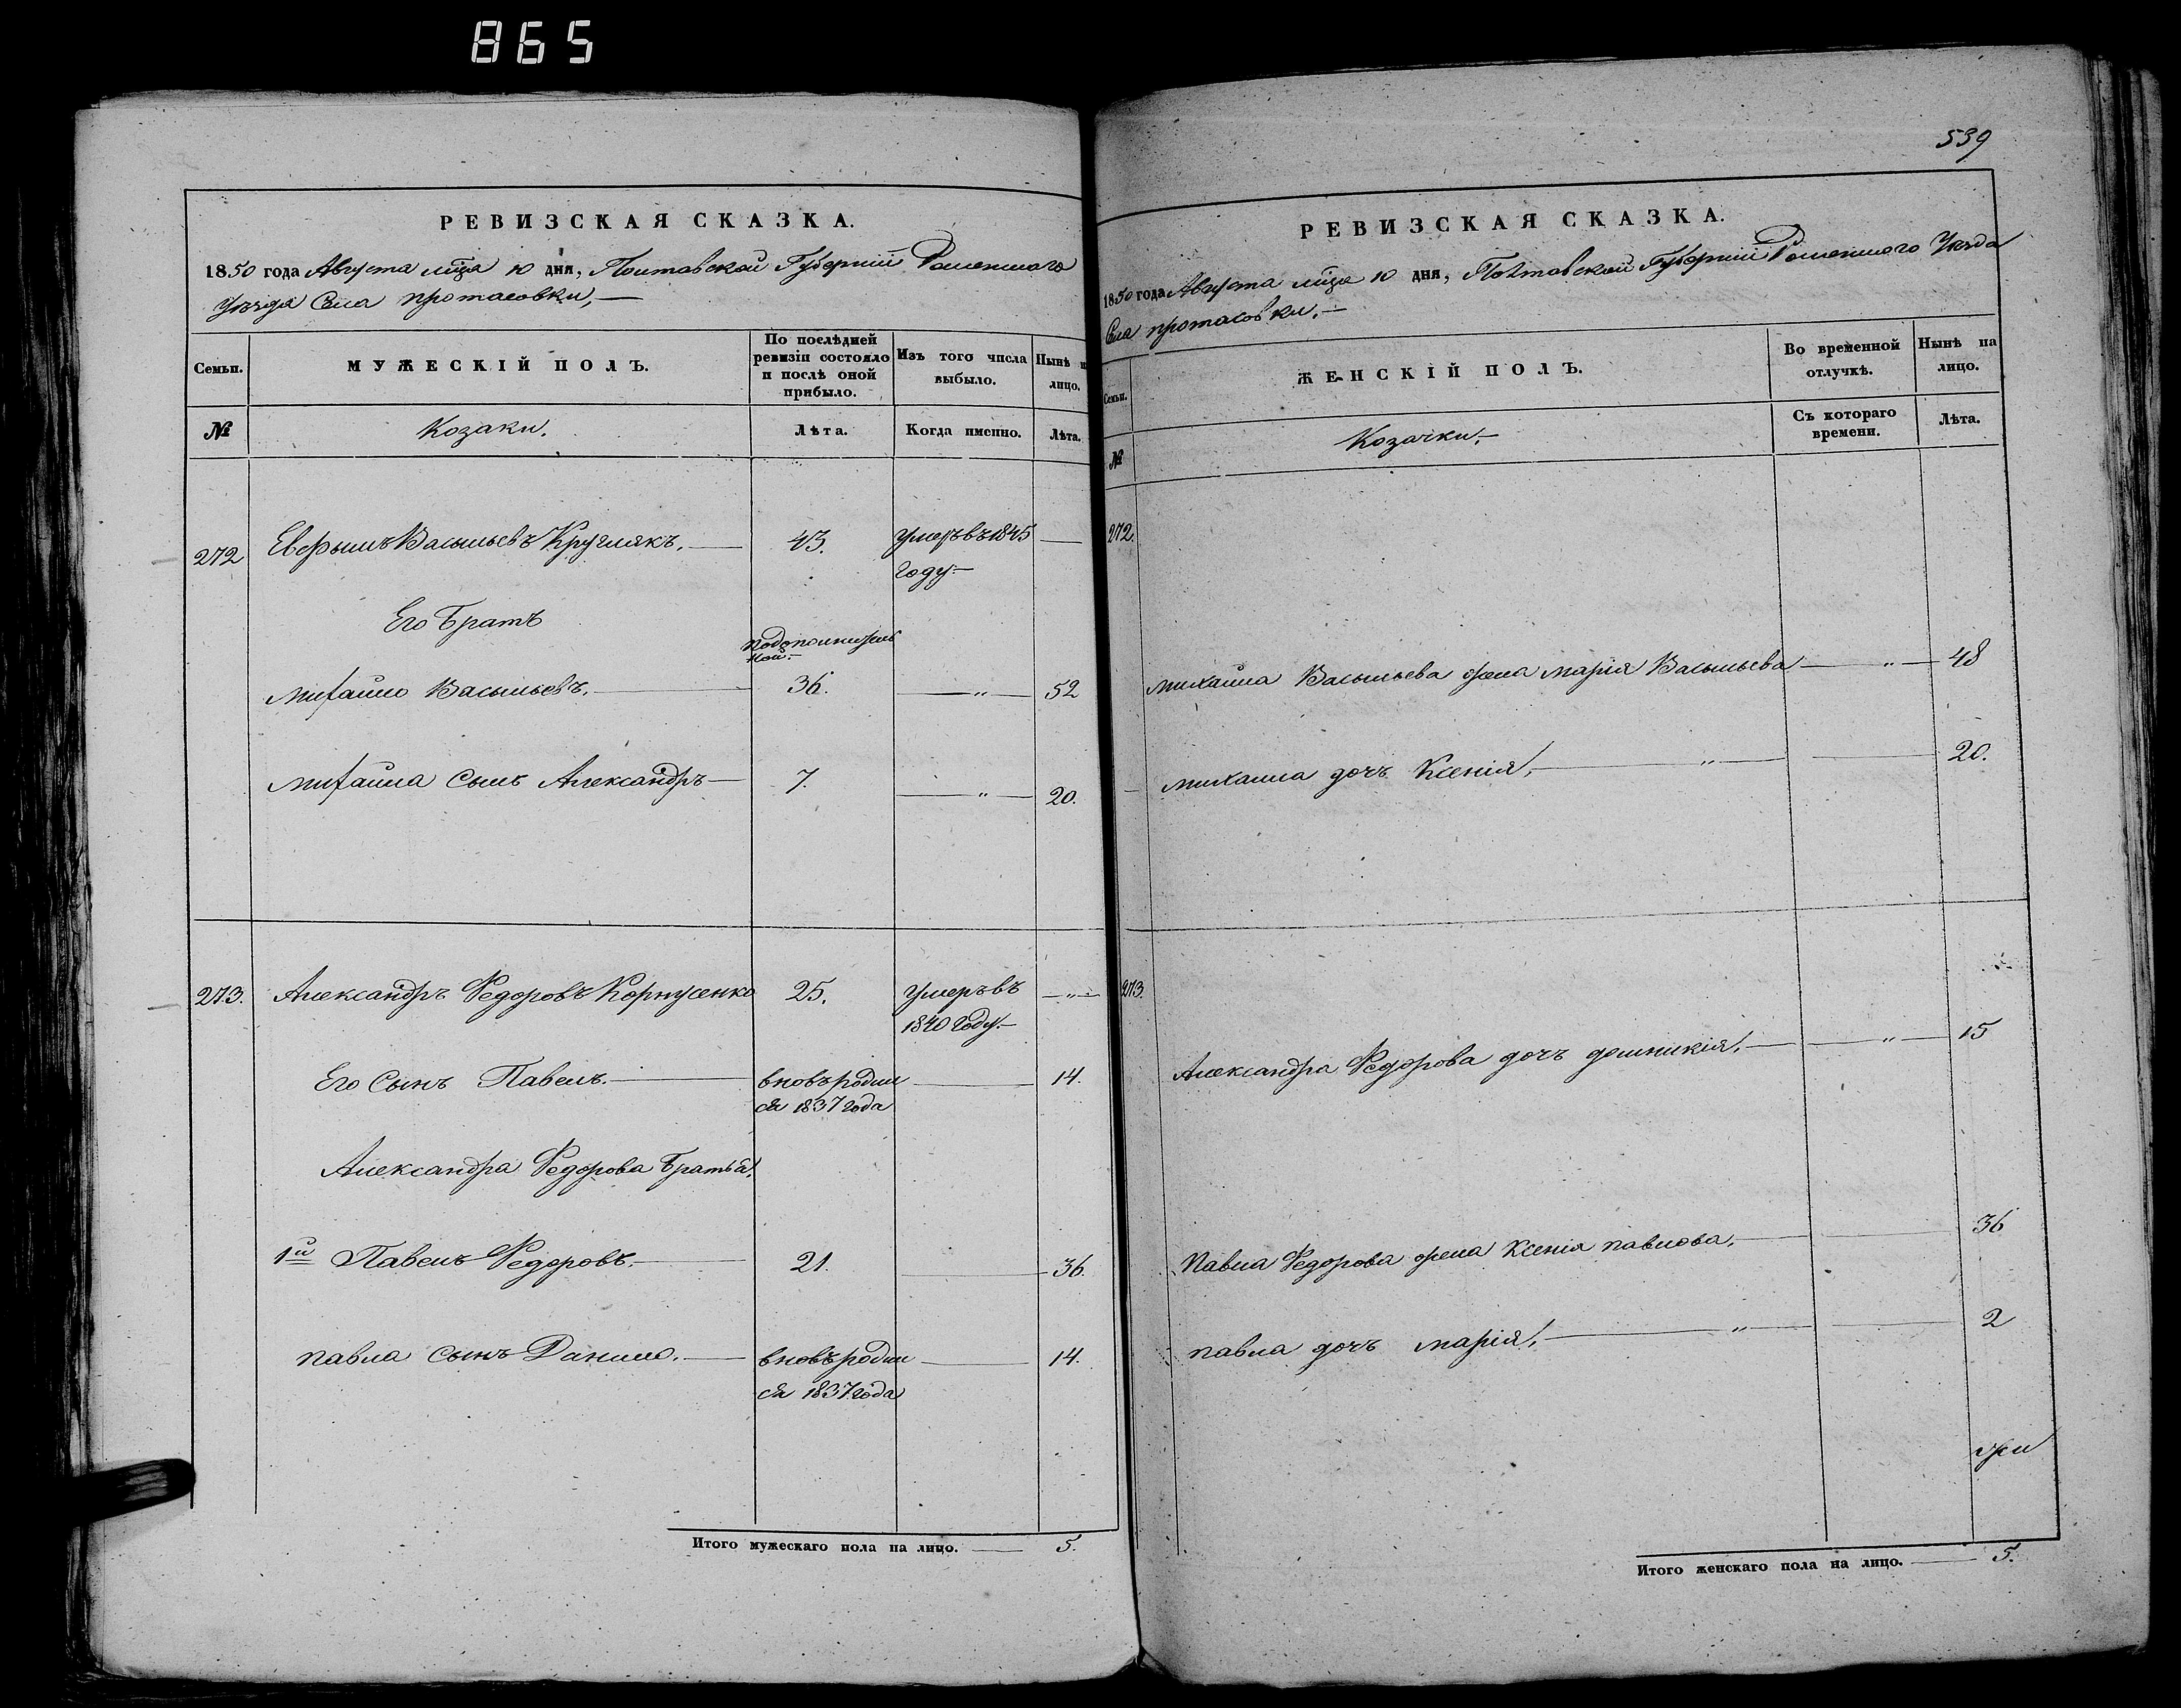 865
РЕВИЗСКАЯ СКАЗКА.
1850 года Августа мѣца 10 дня, Полтавской Губерніи Роменского
Уѣзда Села протасовки,—
Семьи.
МУЖЕСКІЙ ПОЛЪ.
По послѣдней ревизіи состояло и послѣ оной прибыло.
Изъ того числа выбыло.
Нынѣ на лицо.
№
Козаки.
Лѣта.
Когда именно.
Лѣта.
272 Васильевъ Круглякъ. — 43. умеръ въ 1845 —
году —
Его Братъ
Михайло Васильевъ. — 36. — „ — 52
Михайла Сынъ Александръ — 7. — „ — 20.
273. Александръ Федоровъ 25. умеръ въ — „ —
1840 году. —
Его Сынъ Павелъ. — вновь родил — 14.
ся 1837 года
Александра Федорова Братья,
1й Павелъ Федоровъ. — 21. — 36.
павла Сынъ Данило. — вновь родил — 14.
ся 1837 года
Итого мужескаго пола на лицо. — 5.
539
РЕВИЗСКАЯ СКАЗКА.
1850 года Августа мѣца 10 дня, Полтавской Губерніи Роменского Уѣзда
Села протасовки. —
Семьи.
ЖЕНСКІЙ ПОЛЪ.
Во временной отлучкѣ.
Нынѣ на лицо.
№
Козачки. —
Съ котораго времени.
Лѣта.
272.
михайла Васильева жена марія Васильева — „ — 48
михайла дочь Ксенія, — „ — 20.
273.
Александра Федорова дочь домникія, — „ — 15
Павла Федорова жена Ксенія павлова, — 36
павла дочь марія, — „ — 2
Итого женскаго пола на лицо. — 5.